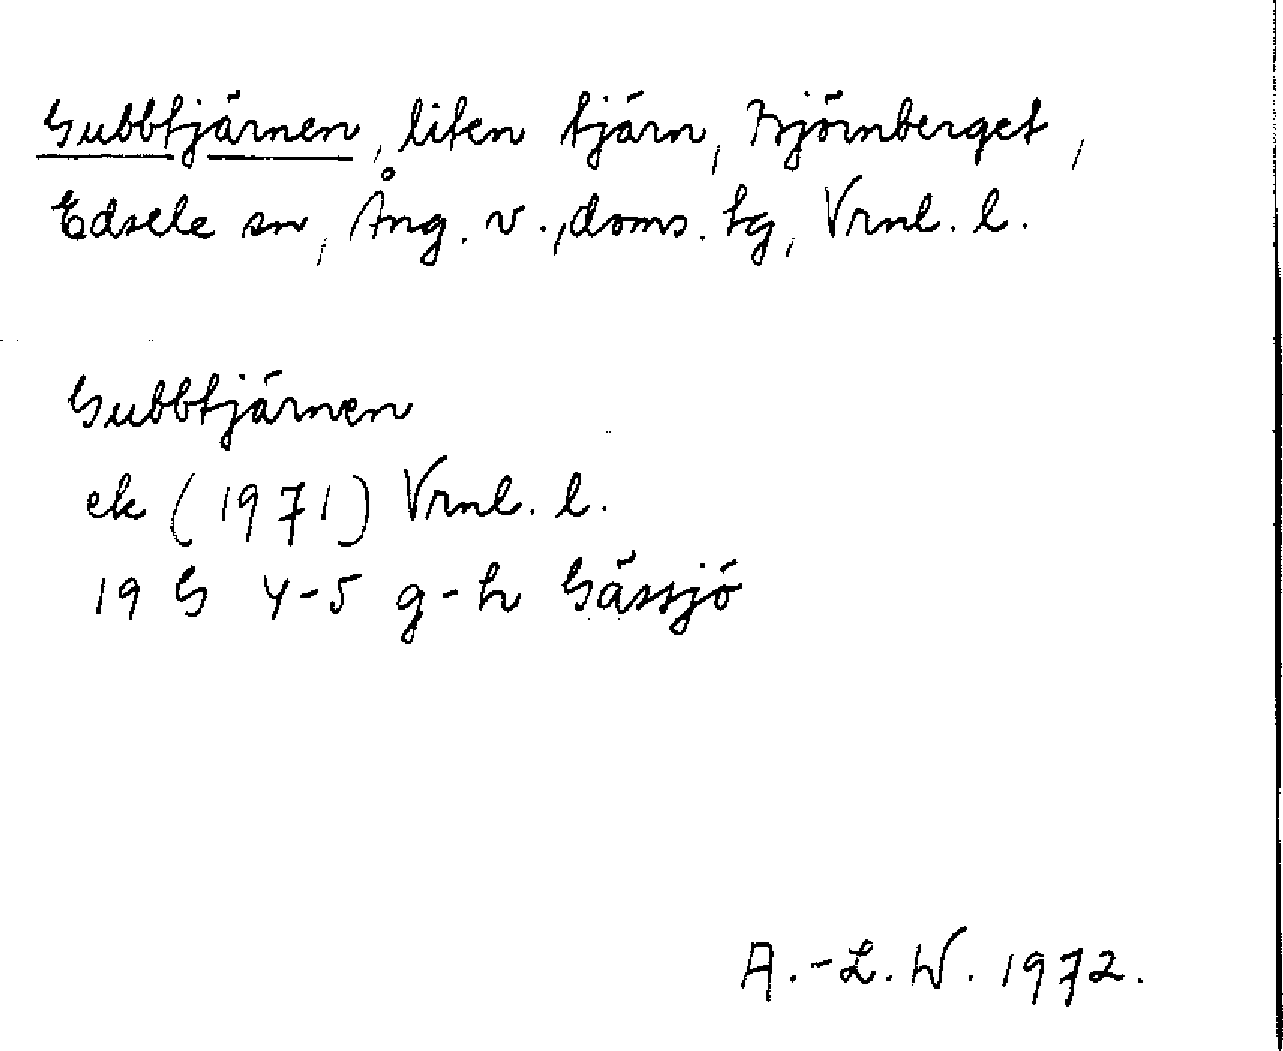 Gubbtjärnen, liten tjärn, Björnberget,
Edsele sn, Ång. v., doms. tg, Vrnl. l.
Gubbtjärnen
ek (1971) Vrnl. l.
19 G 4-5 g-h Gässjö
A.-L. W. 1972.